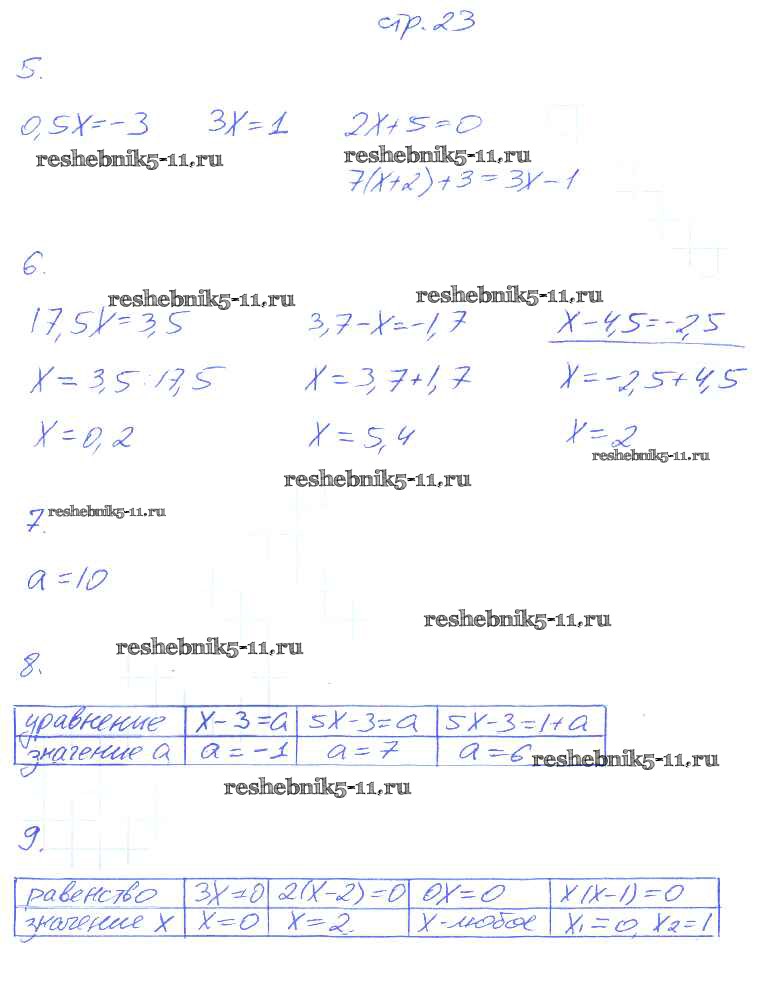 стр. 23
5.
0,5х=-3 3х=1 2х+5=0
reshebnik5-11.ru reshebnik5-11.ru
7(х+2)+3=3х-1
6.
reshebnik5-11.ru reshebnik5-11.ru
17,5х=3,5 3,7-х=-1,7 х-4,5=-2,5
х=3,5:17,5 х=3,7+1,7 х=-2,5+4,5
х=0,2 х=5,4 х=2
reshebnik5-11.ru
reshebnik5-11.ru
7. reshebnik5-11.ru
а=10
reshebnik5-11.ru
reshebnik5-11.ru
8.
уравнение х-3=а 5х-3=а 5х-3=1+а
значение а а=-1 а=7 а=6 reshebnik5-11.ru
reshebnik5-11.ru
9.
равенство 3х=0 2(х-2)=0 0х=0 х(х-1)=0
значение х х=0 х=2. х-любое х₁=0, х₂=1